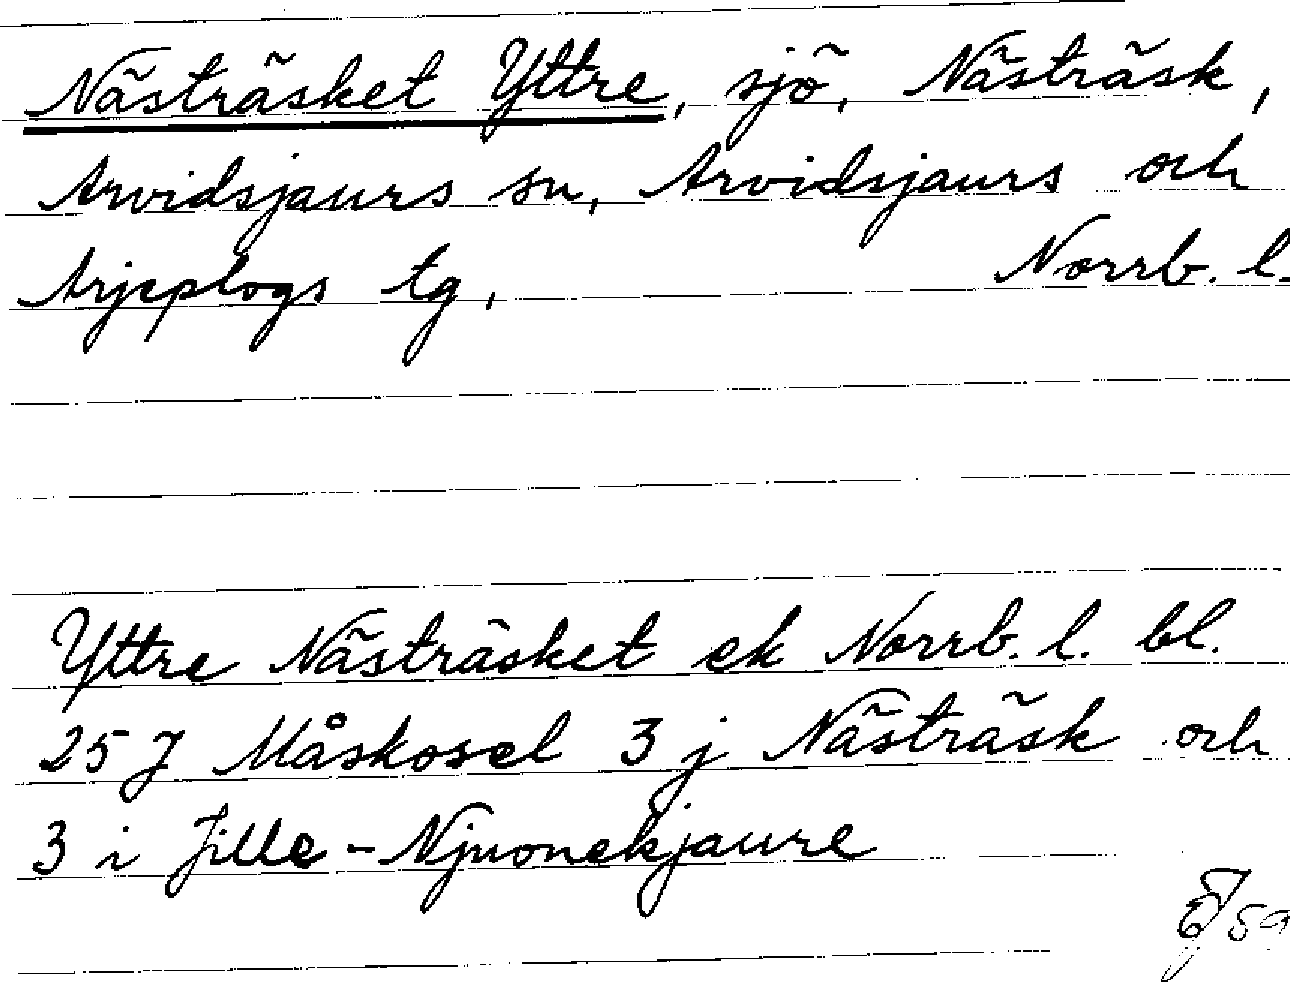 Nästräsket Yttre, sjö, Nästräsk,
Arvidsjaurs sn, Arvidsjaurs och
Arjeplogs tg, Norrb. l.
Yttre Nästräsket ek Norrb. l. bl.
25 J Måskosel 3 j Nästräsk och
3 i Jille-Njuonekjaure
59